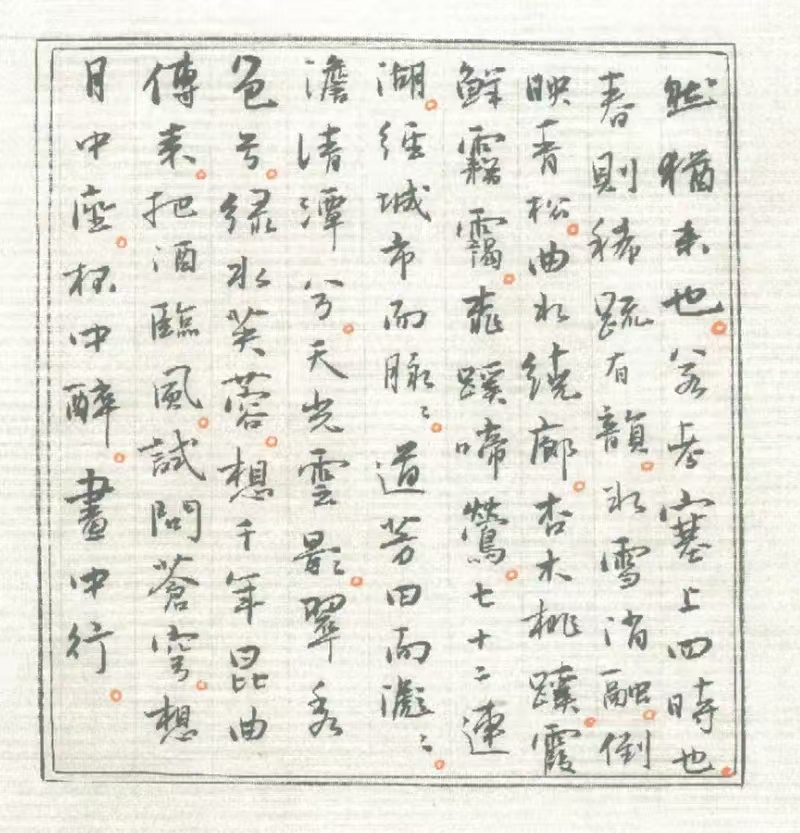 然猶未也。若塞上四時也。
春則稀疏有韻。冰雪消融。倒
映青松。曲水繞廊。杏木桃。霞
鮮霧靄。蹊啼鶯。七十二連
湖。經城市而脉〻。道芳田而瀰〻。
澹清潭兮。天光雲影。翠秀
色兮。綠水芙蓉。想千年昆曲
傳來。把酒臨風。試問蒼穹。想
月中座。杯中醉。畫中行。